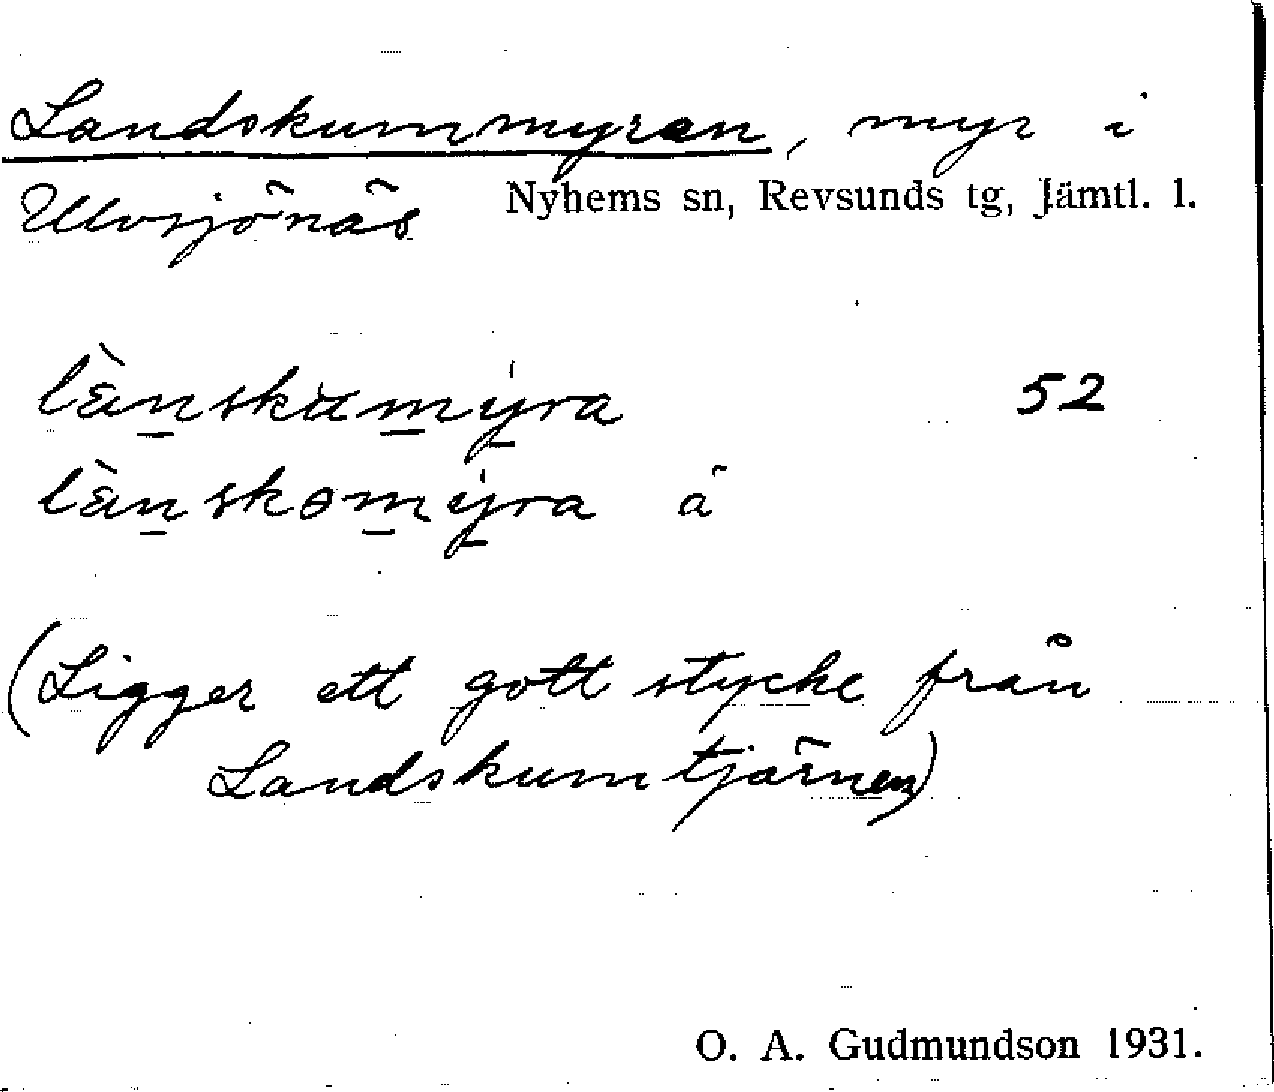 Landskummyren, myr i
Ulvsjönäs Nyhems sn, Revsunds tg, Jämtl. l.
lànskumyra 52
lànskomyra ä
(Ligger ett gott stycke från
Landskumtjärnen)
O. A. Gudmundson 1931.